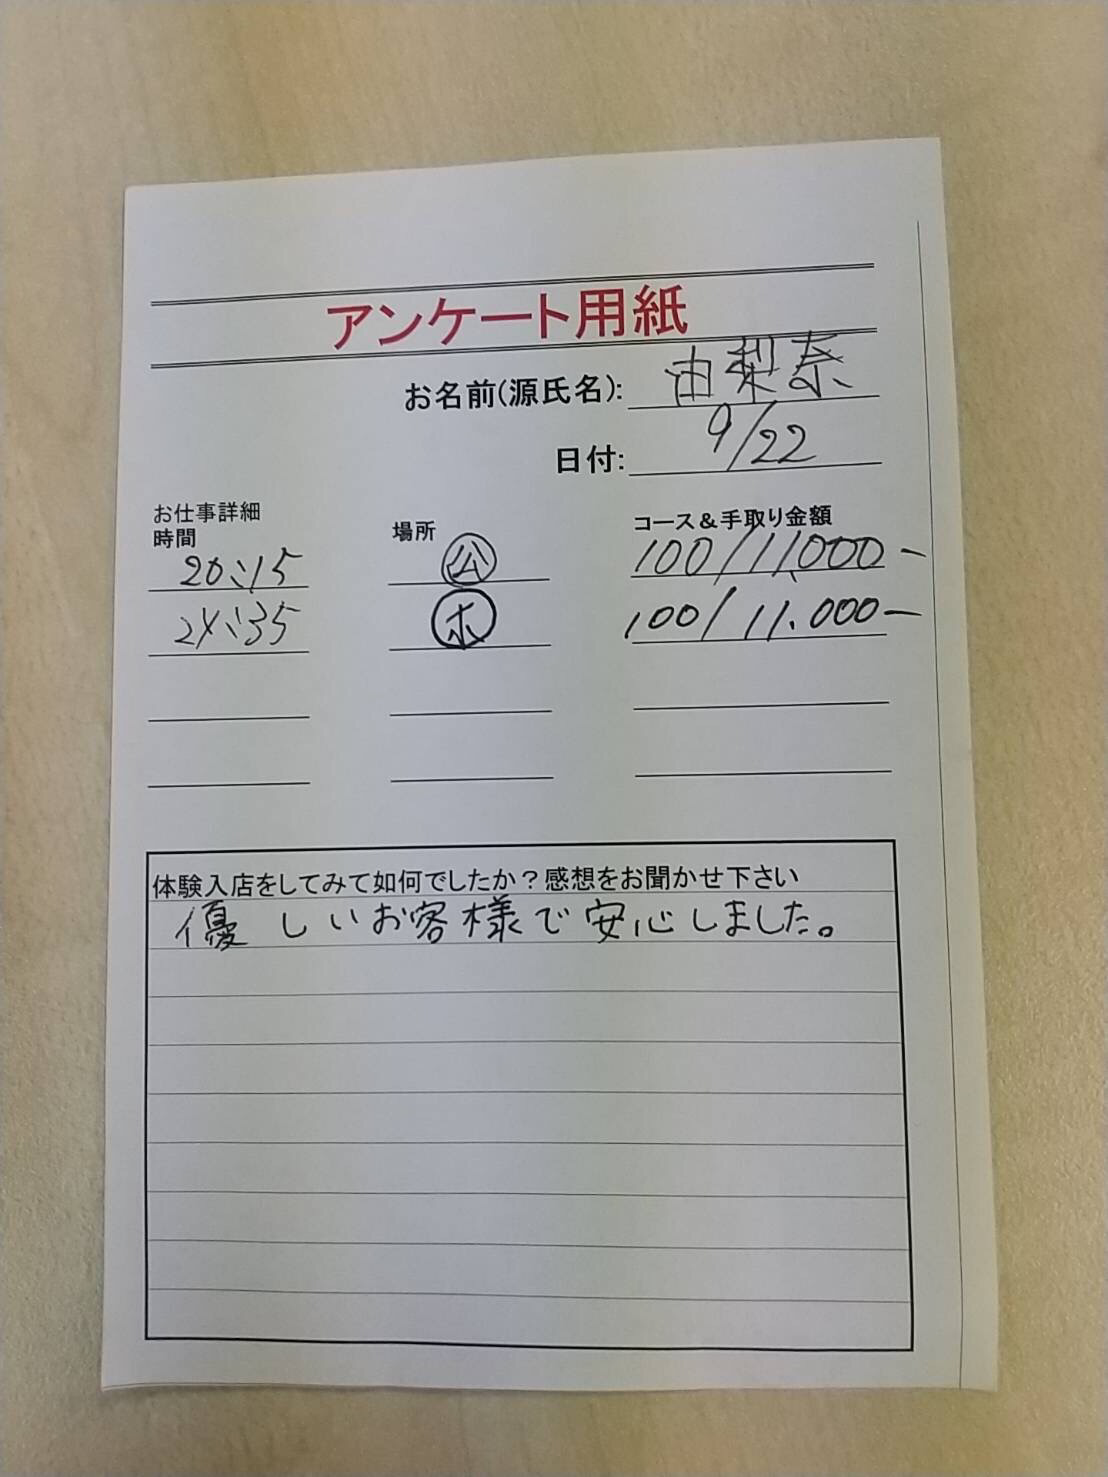 アンケート用紙
お名前(源氏名): 由梨奈
日付: 9/22
お仕事詳細
時間 場所 コース&手取り金額
20:15 公 100/11,000-
24:35 ホ 100/11.000-
体験入店をしてみて如何でしたか?感想をお聞かせ下さい
優しいお客様で安心しました。